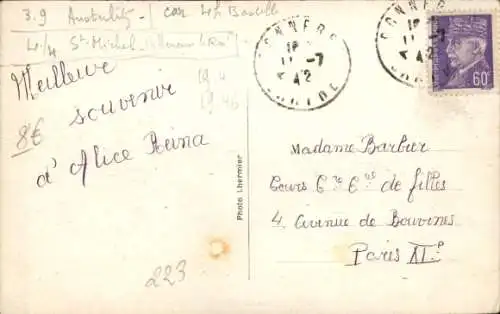 3.9 Austerlitz - / car 4h Bastille
4/4 St Michel
Meilleur
souvenir
d'Alice Reina
8€
19.4
19.46
223
Photo Lhermier
CONNERRÉ
11-7
42
SARTHE
CONNERRÉ
11-7
42
SARTHE
60c
Madame Barbier
Cours Cre Cal de filles
4. Avenue de Bouvines
Paris XIe